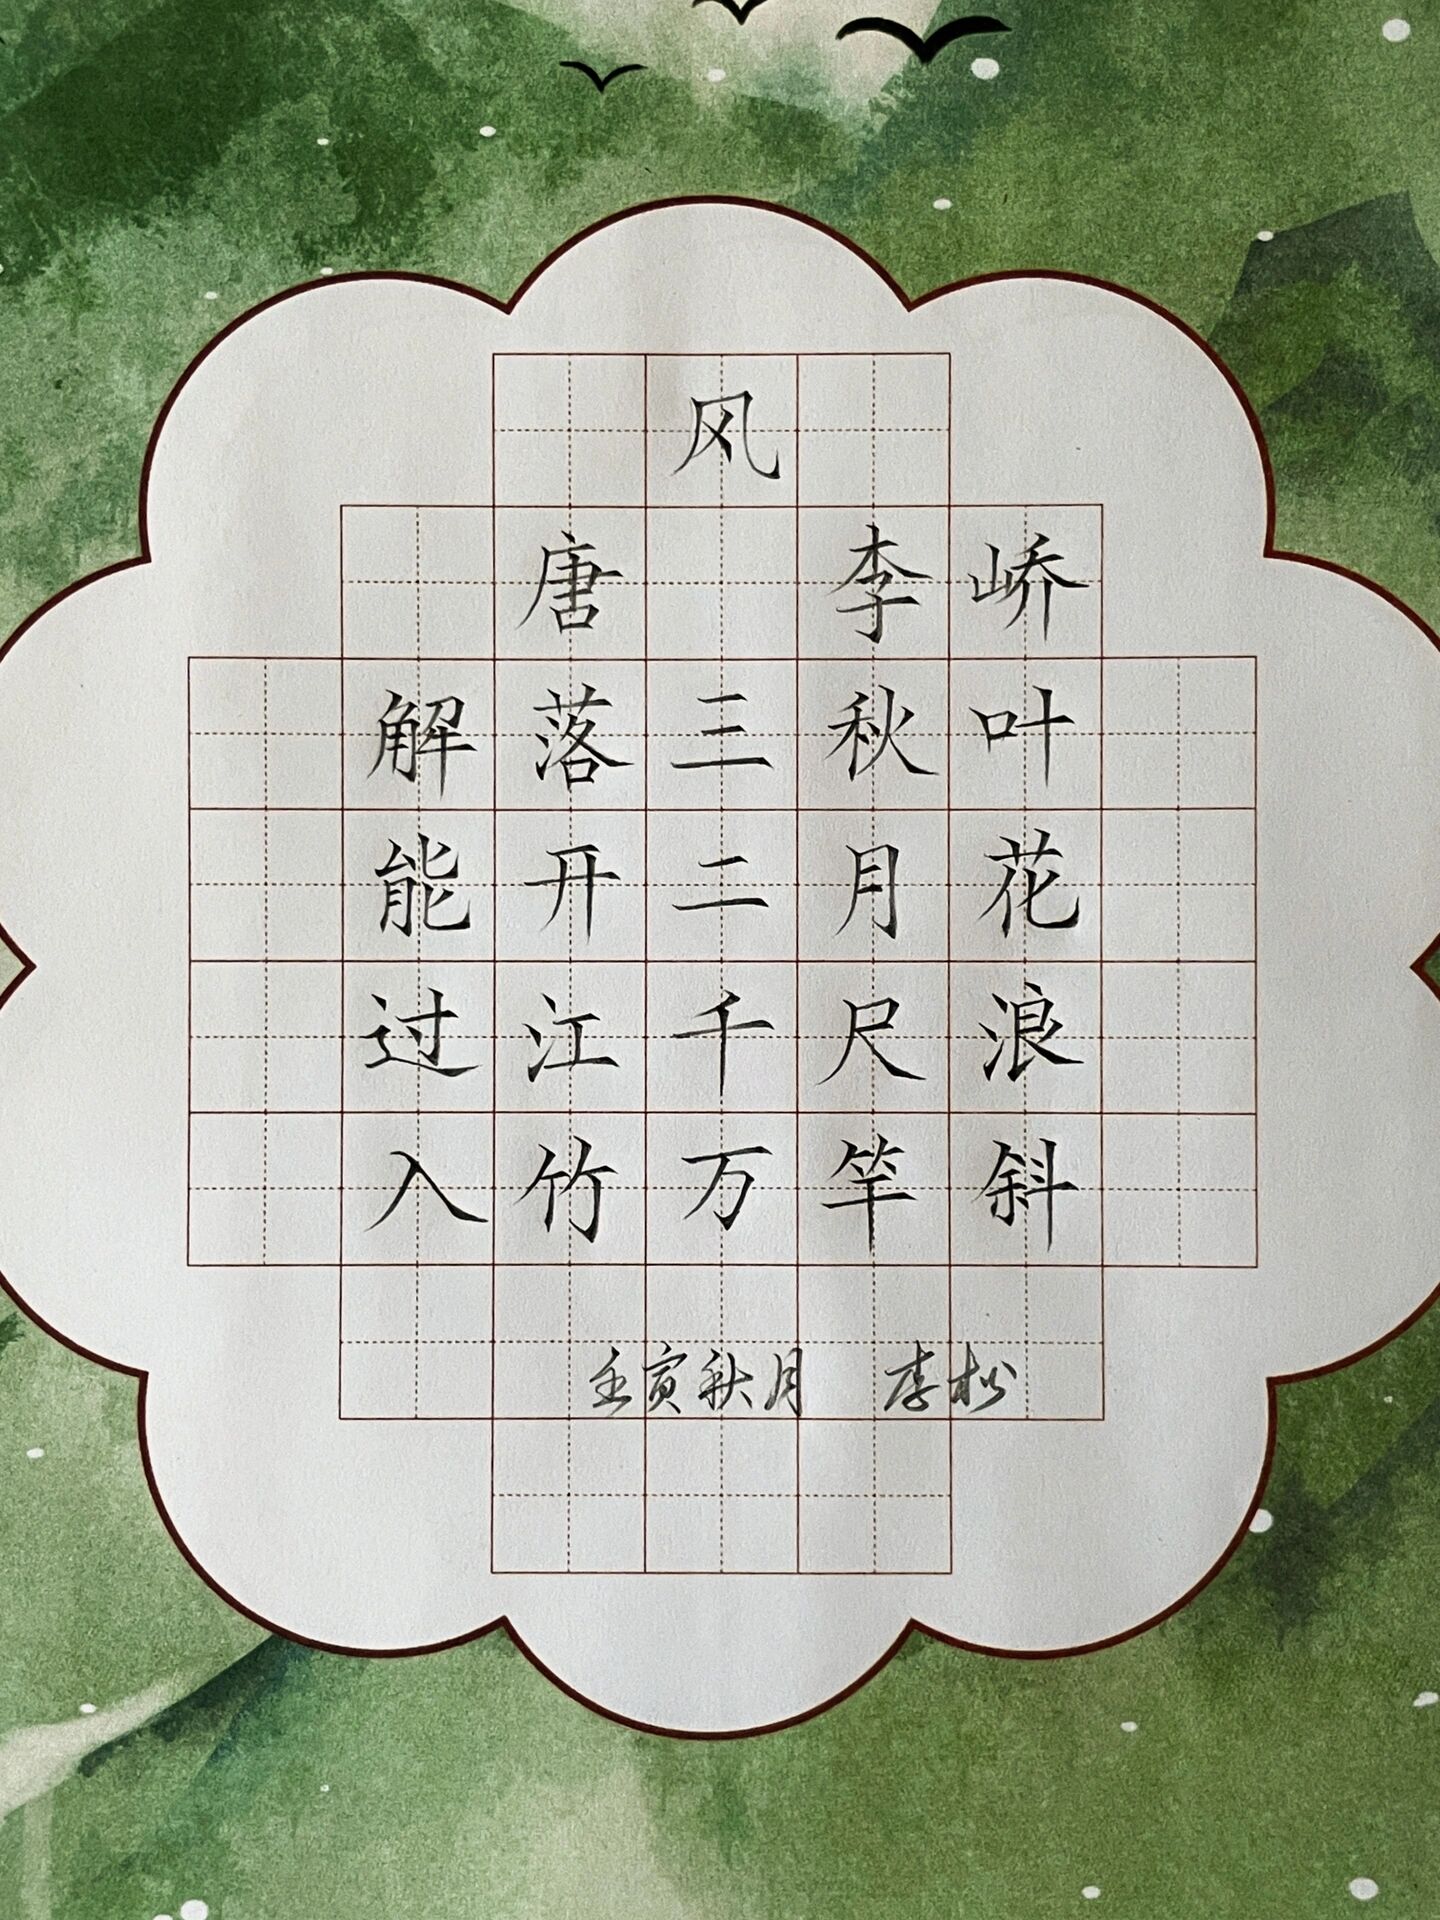 风
唐 李峤
解落三秋叶
能开二月花
过江千尺浪
入竹万竿斜
壬寅秋月 李松